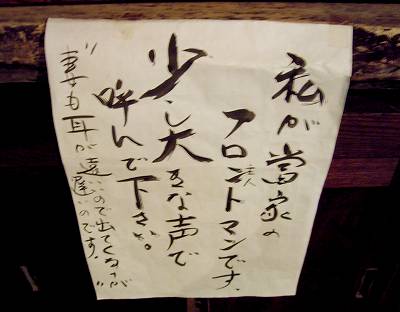 私が當家の
フロント夫人マンです.
少し大きな声で
呼んで下さい。
"妻も耳が遠いので出てくるのが
遅いのです."